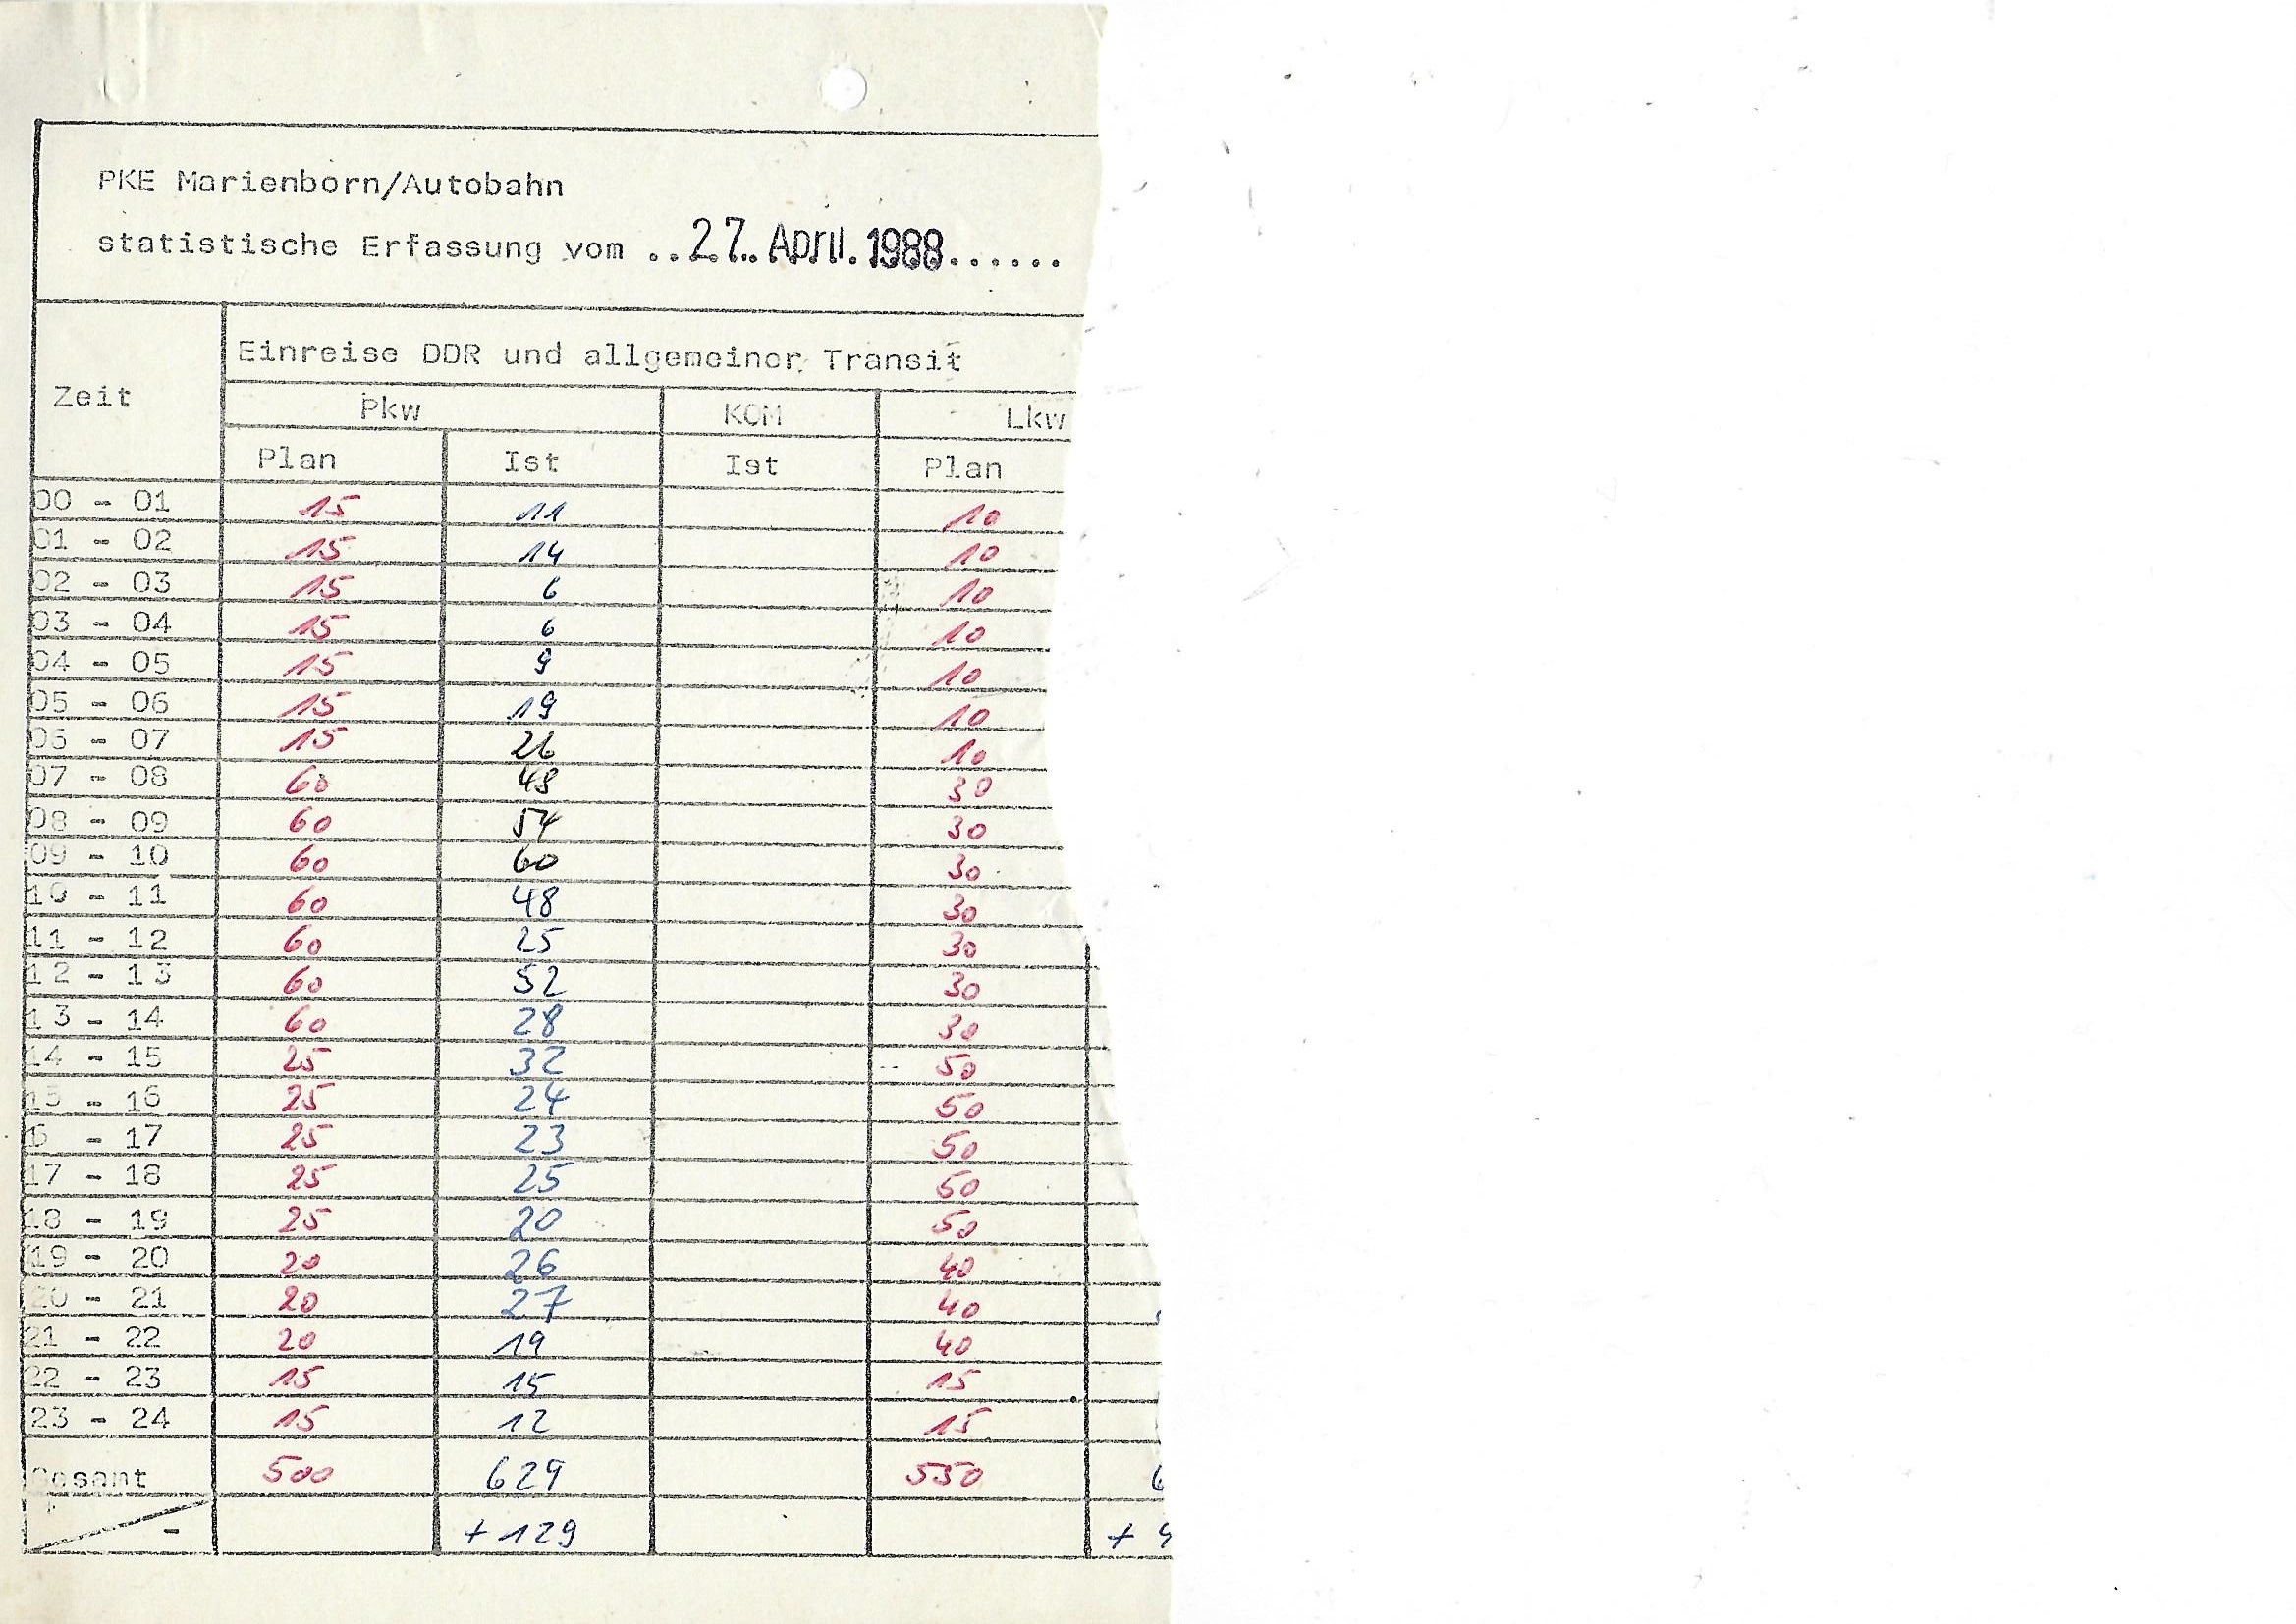 PKE Marienborn/Autobahn
statistische Erfassung vom ..27. April. 1988......
Einreise DDR und allgemeiner Transit
Zeit
Pkw KOM Lkw
Plan Ist Ist Plan
00 - 01 15 11 10
01 - 02 15 14 10
02 - 03 15 6 10
03 - 04 15 6 10
04 - 05 15 9 10
05 - 06 15 19 10
06 - 07 15 26 10
07 - 08 60 30
08 - 09 60 54 30
09 - 10 60 60 30
10 - 11 60 48 30
11 - 12 60 25 30
12 - 13 60 52 30
13 - 14 60 28 30
14 - 15 25 32 50
15 - 16 25 24 50
6 - 17 25 23 50
17 - 18 25 25 50
18 - 19 25 20 50
19 - 20 20 26 40
20 - 21 20 27 40
21 - 22 20 19 40
22 - 23 15 15 15
23 - 24 15 12 15
Gesamt 500 629 550
- + 129 +